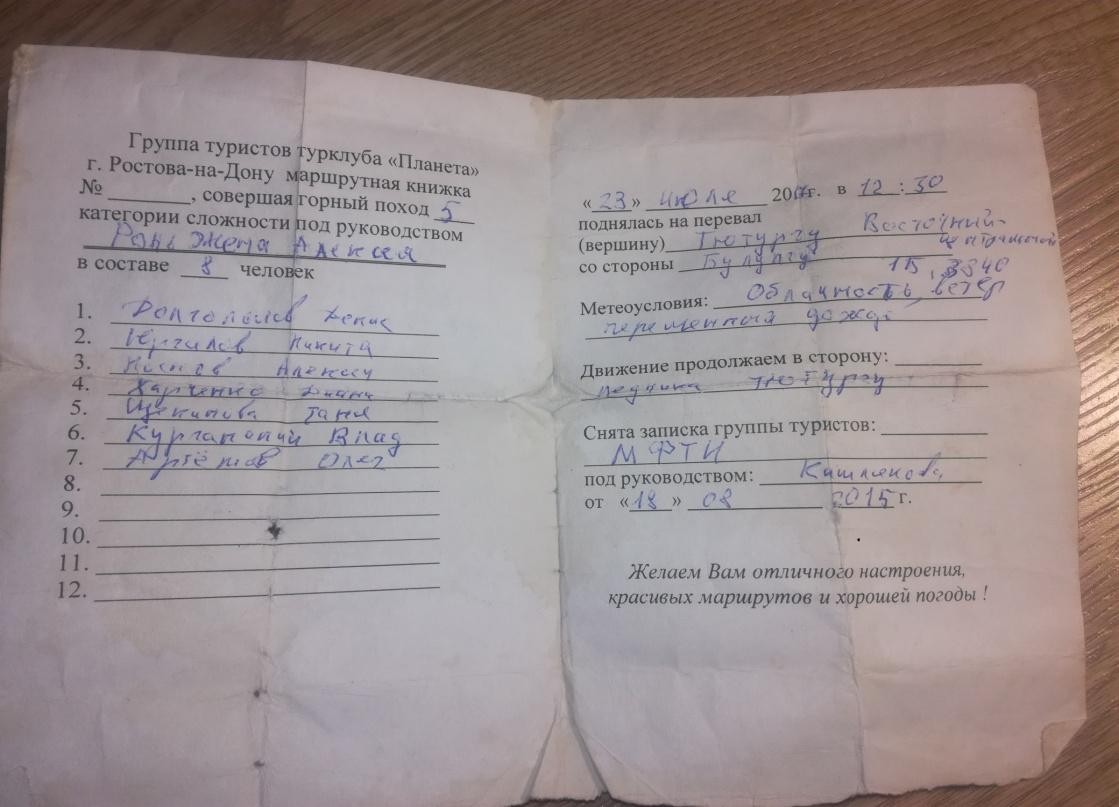 Группа туристов турклуба «Планета»
г. Ростова-на-Дону маршрутная книжка
№ , совершая горный поход 5
категории сложности под руководством
Алексея
в составе 8 человек
1. Долгополов Денис
2. Никита
3. Носков Алексей
4. Харченко Диана
5. Щекинова Таня
6. Курганский Влад
7. Артёмов Олег
8.
9.
10.
11.
12.
«23» июля 2017г. в 12:30
поднялась на перевал
(вершину) Тютургу Восточный
со стороны Булунгу 1Б, 3340
Метеоусловия: Облачность, ветер
переменный дождь
Движение продолжаем в сторону:
ледника Тютургу
Снята записка группы туристов:
МФТИ
под руководством: Кишлякова
от «18» 08 2015 г.
Желаем Вам отличного настроения,
красивых маршрутов и хорошей погоды !